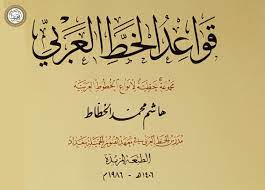 قواعد الخط العربي
مجموعة خطية لأنواع الخطوط العربية
هاشم محمد الخطاط
مدرس الخط العربي في معهد الفنون الجميلة ببغداد
الطبعة المزيدة
١٤٠٦هـ - ١٩٨٦م